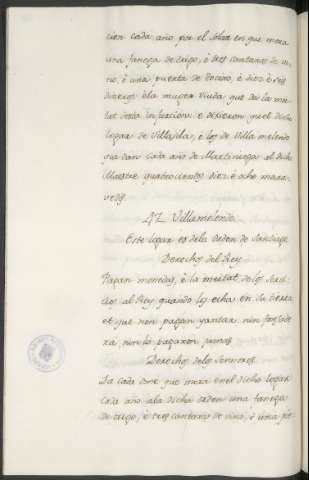 cion cada año por el Solar en que mora
una fanega de trigo, è tres cantaras de vi-
no, è una cuarta de tocino, è diez è seis
dineros è la muger viuda que dè la mi-
tat desta infurcion: è dixeron quel dicho
lugar de Villasila, è los de Villa melendo
que dan cada año de Martiniega al dicho
Maestre quatrocientos diez è ocho mara-
vedis.
47. Villamelendo.
Este lugar es dela orden de Santiago
Derechos del Rey
Pagan monedas, è la meitat delos Servi-
cios al Rey quando los echa en la tierra
et que non pagan yantar, nin fonsade
ra nin la pagaron jamas
Derechos delos Sennores
Da cada ome que mora en el dicho lugar
cada año ala dicha orden una fanega
de trigo, è tres cantaras de vino, è una